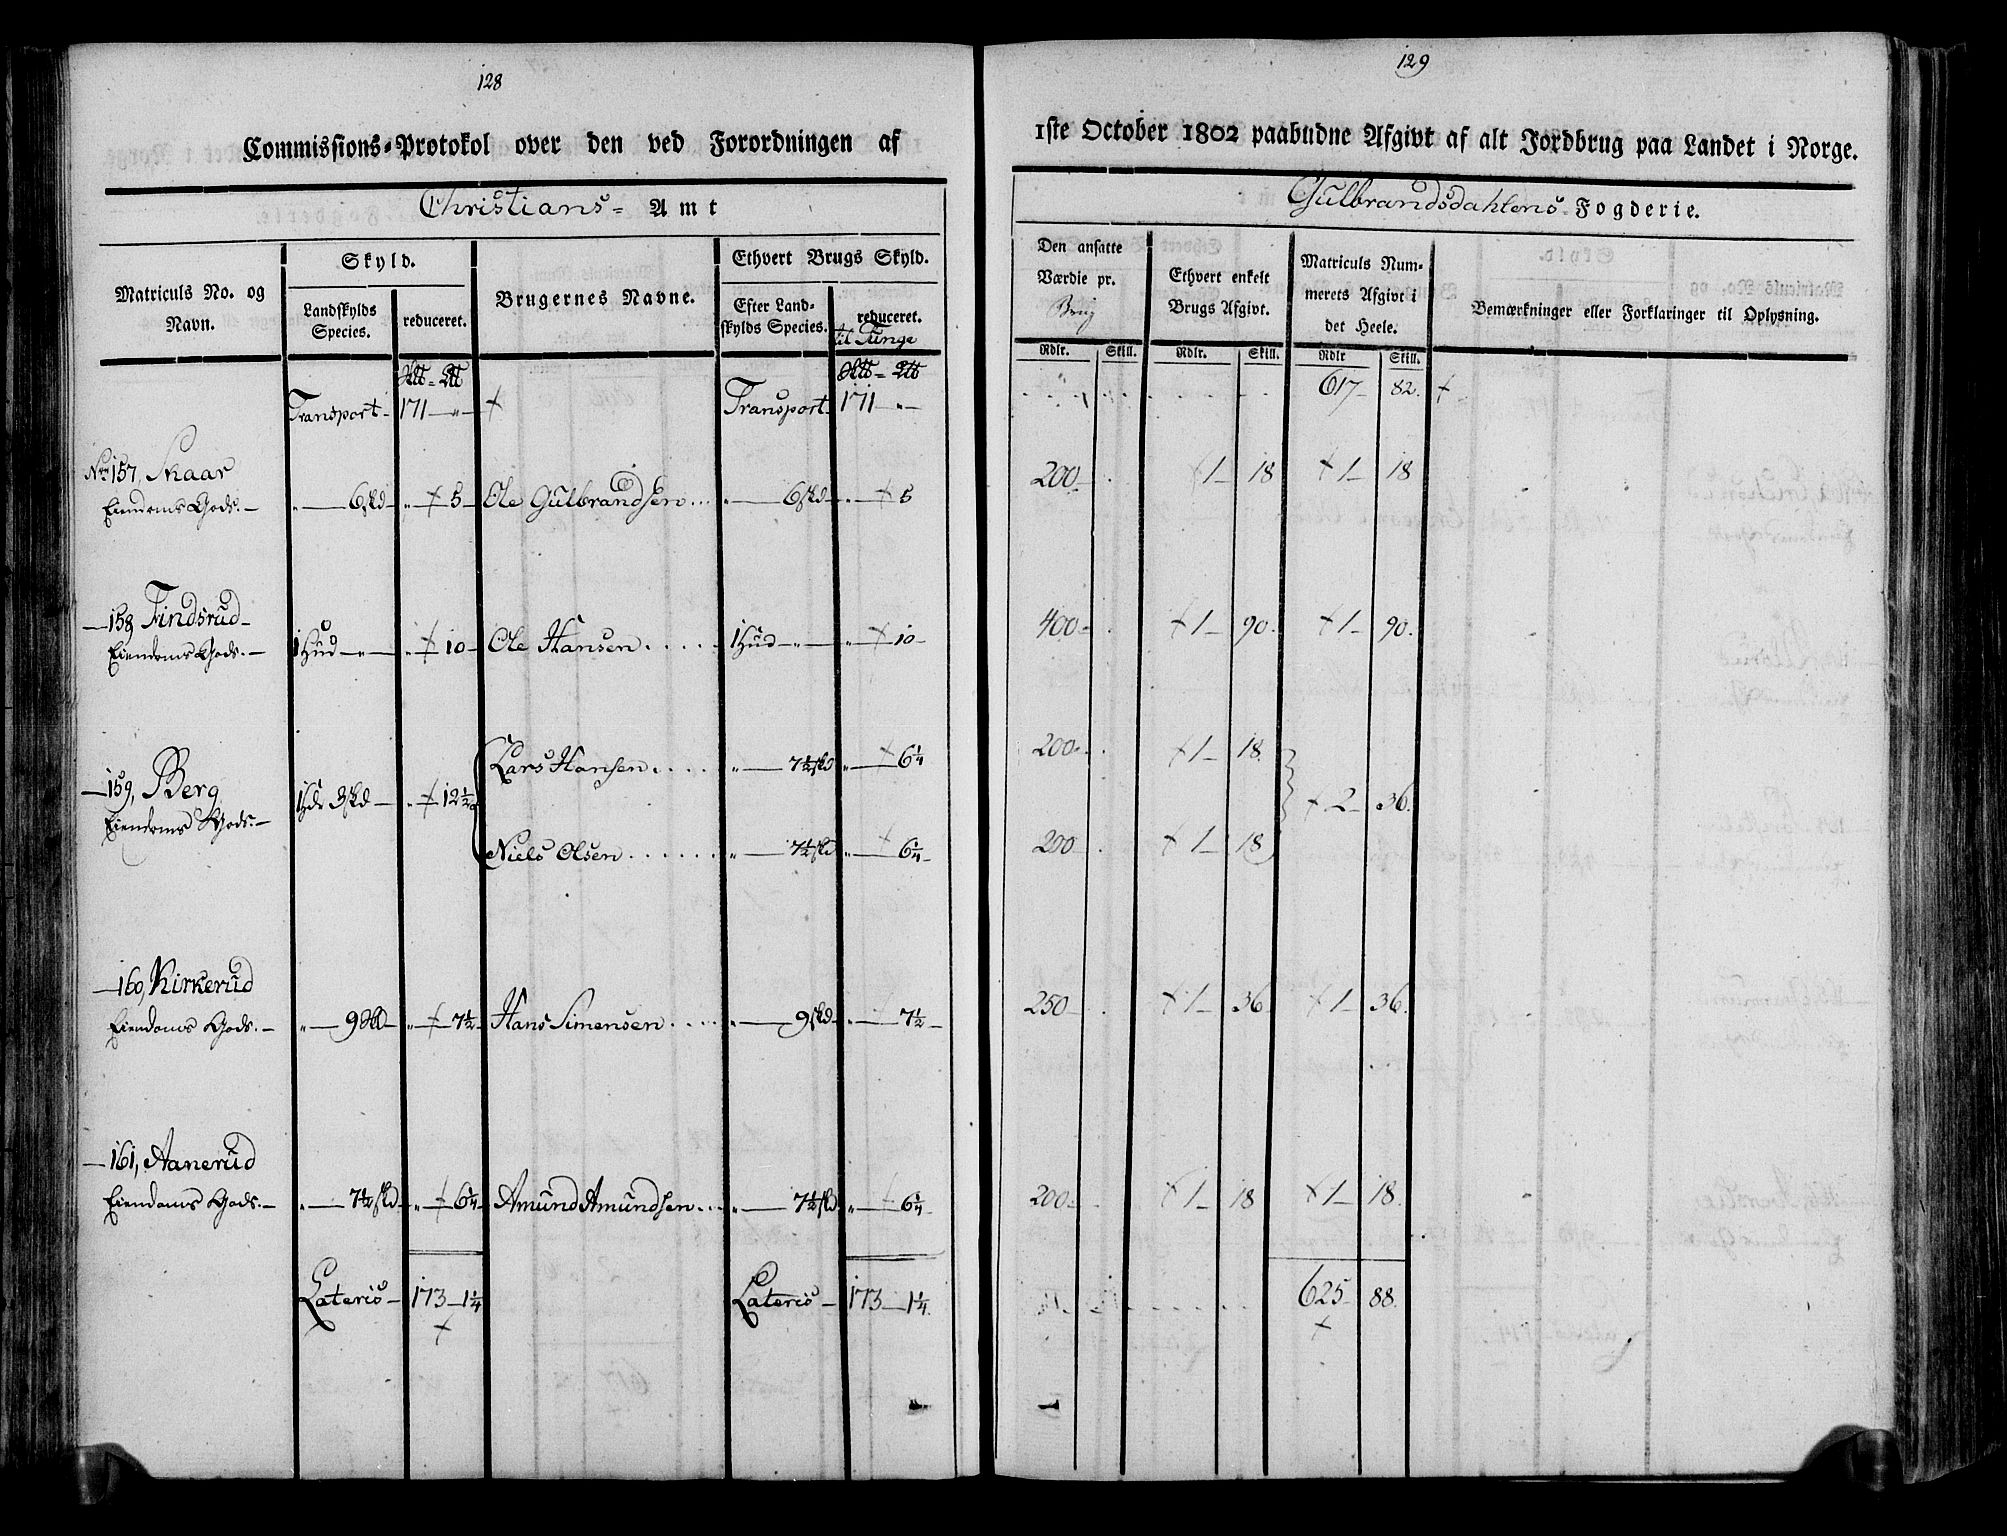 128
Commissions-Protokol over den ved Forordningen af
Christians= Amt
Matriculs No. og Navn.
Skyld.
Landskylds Species.
reduceret.
Brugernes Navne.
Ethvert Brugs Skyld.
Efter Landskylds Species.
reduceret.
til Tunge
Transport- 171 — „ — Transport 171 „ -
No 157, Skaar
Eiendoms Gods. — „ — 6 skd — „ — 5 Ole Gulbrandsen . . . „ — 6 skd — „ — 5
— 158, Findsrud
Eiendoms Gods. — 1 Hud — „ — „ — 10 — Ole Hansen . . . . . 1 Hud — „ — „ — 10 -
— 159, Berg
Eiendoms Gods. — 1 Hd 3 skd — „ — 12½
Lars Hansen . . . . . „ — 7½ skd „ — 6¼
Niels Olsen . . . . . . „ — 7½ skd „ — 6¼
— 160, Kirkerud
Eiendoms Gods. — „ — 9 skd — „ — 7½ Hans Simensen . . . . „ — 9 skd „ — 7½ —
— 161, Aanerud
Eiendoms Gods. — „ — 7½ skd — „ — 6¼ Amund Amundsen . . . „ — 7½ skd „ — 6¼ —
Lateris — 173 — 1¼ Lateris — 173 — 1¼
129
1ste October 1802 paabudne Afgivt af alt Jordbrug paa Landet i Norge.
Gulbrandsdahlens Fogderie.
Den ansatte Værdie pr.
Brug
Ethvert enkelt Brugs Afgivt.
Matriculs Nummerets Afgivt i det Heele.
Bemærkninger eller Forklaringer til Oplysning.
Rdlr. Skill. Rdlr. Skill. Rdlr Skill.
617 - 82.
200 - 1 - 18 1 - 18
400 - 1 - 90. 1 - 90.
200 - 1 - 18.
2 - 36.
200 - 1 - 18
250 - 1 - 36. 1 - 36.
200 - 1 - 18 1 - 18.
625 - 88.